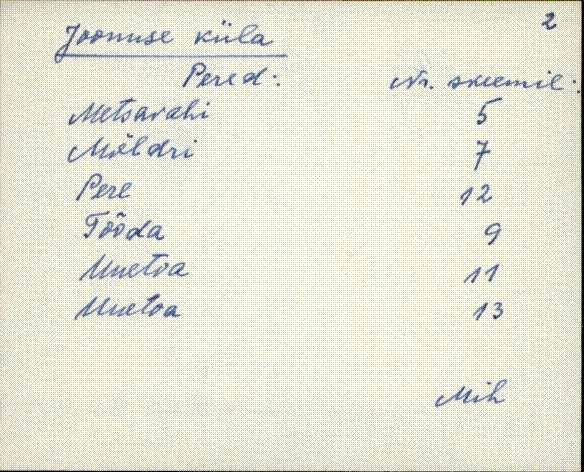 2
Joonuse küla
Pered: Nr. skeemil:
Metsavahi 5
Möldri 7
Pere 12
Tõõda 9
Uuetoa 11
Uuetoa 13
Mih